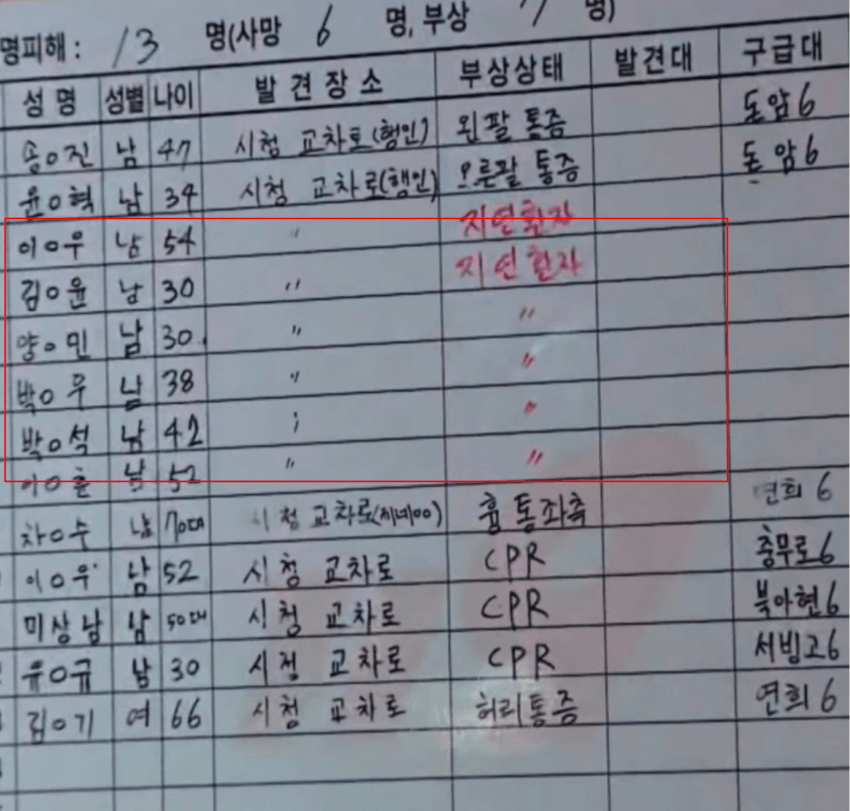 명피해: 13 명(사망 6 명, 부상 7 명)
성명 성별 나이 발견장소 부상상태 발견대 구급대
송○진 남 47 시청 교차로(행인) 왼팔 통증 돈암6
윤○혁 남 34 시청 교차로(행인) 오른팔 통증 돈암6
이○우 남 54 〃 지연환자
김○윤 남 30 〃 지연환자
양○민 남 30 〃 〃
박○우 남 38 〃 〃
박○석 남 42 〃 〃
이○훈 남 52 〃 〃
차○수 남 70대 시청 교차로 흉통좌측 연희6
이○우 남 52 시청 교차로 CPR 충무로6
미상남 남 50대 시청 교차로 CPR 북아현6
유○규 남 30 시청 교차로 CPR 서빙고6
김○기 여 66 시청 교차로 허리통증 연희6